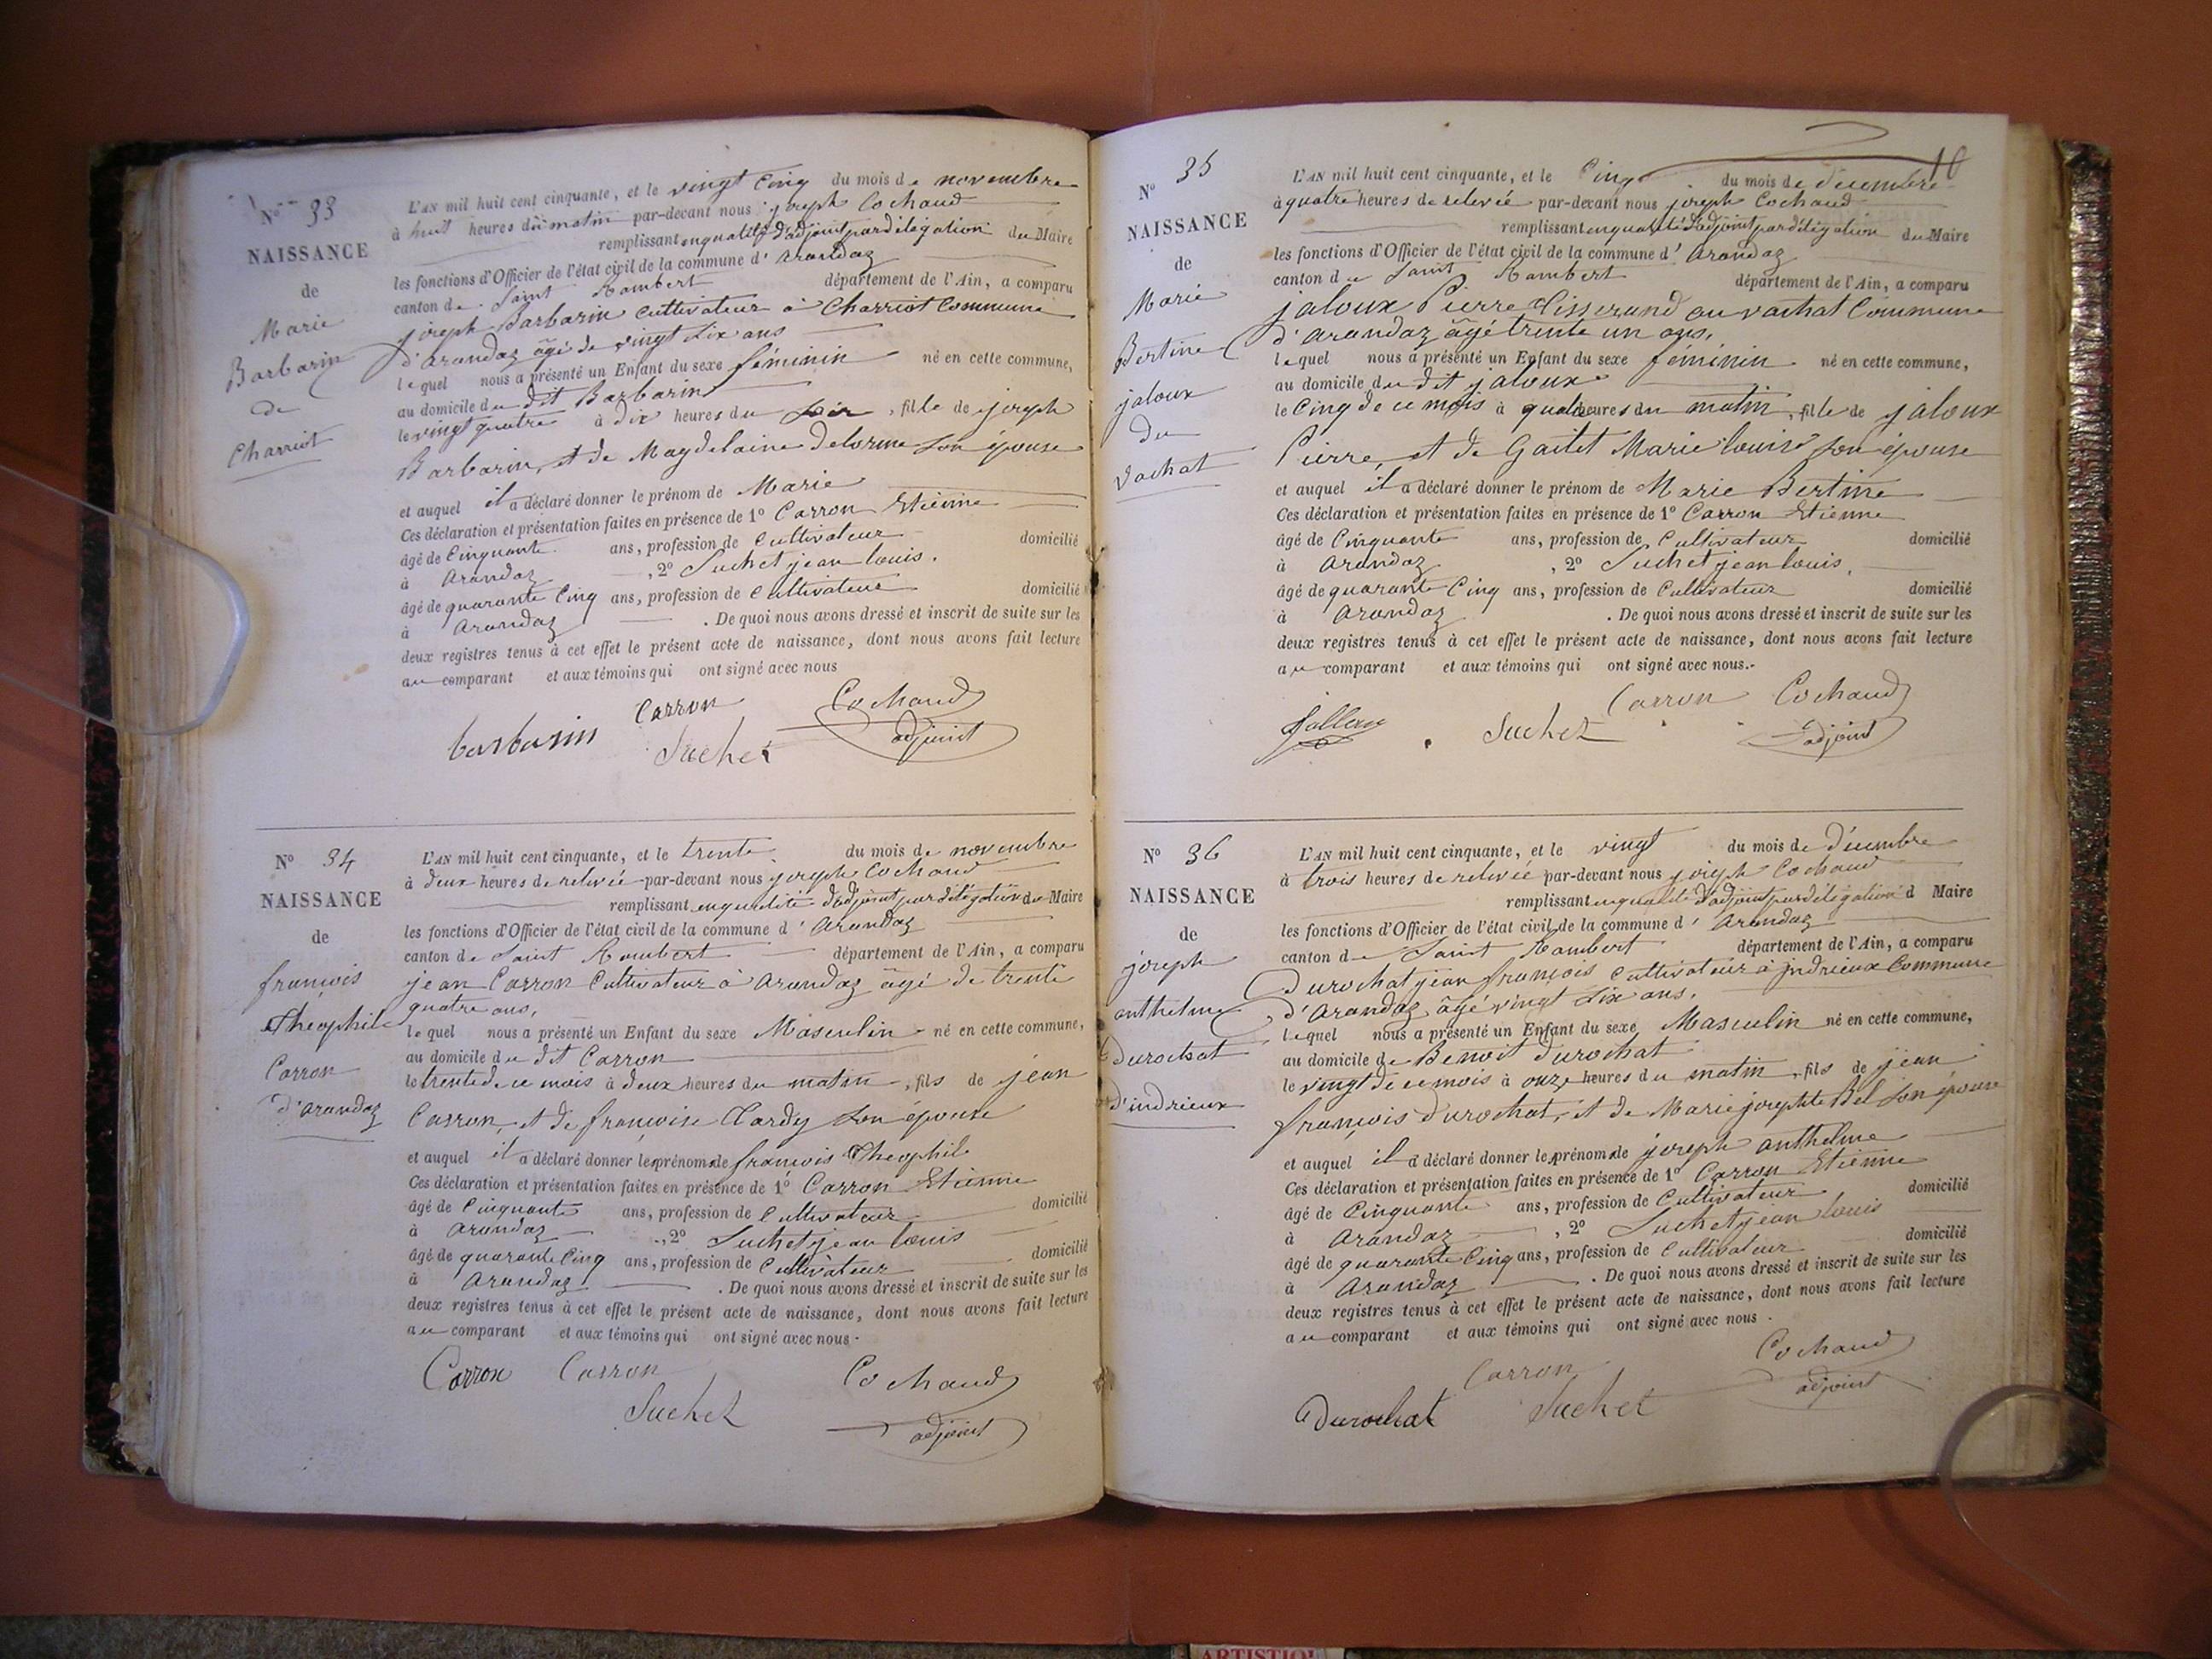 N° 33
NAISSANCE
de
Marie
Barbarin
de
Charriot
L'AN mil huit cent cinquante, et le vingt cinq du mois de novembre
à huit heures du matin par-devant nous joseph Cochaud
remplissant en qualité d'adjoint par délégation du Maire
les fonctions d'Officier de l'état civil de la commune d'Arandaz
canton de Saint Rambert département de l'Ain, a comparu
joseph Barbarin cultivateur à Charriot Commune
d'Arandaz âgé de vingt six ans
lequel nous a présenté un Enfant du sexe féminin né en cette commune,
au domicile du dit Barbarin
le vingt quatre à dix heures du soir, fille de joseph
Barbarin, et de Magdelaine Delorme son épouse
et auquel il a déclaré donner le prénom de Marie
Ces déclaration et présentation faites en présence de 1° Carron Etienne
âgé de Cinquante ans, profession de Cultivateur domicilié
à Arandaz, 2° Suchet jean louis.
âgé de quarante Cinq ans, profession de Cultivateur domicilié
à Arandaz. De quoi nous avons dressé et inscrit de suite sur les
deux registres tenus à cet effet le présent acte de naissance, dont nous avons fait lecture
au comparant et aux témoins qui ont signé avec nous
barbarin Carron Cochaud
Suchet adjoint
N° 34
NAISSANCE
de
françois
Théophile
Carron
d'Arandaz
L'AN mil huit cent cinquante, et le trente du mois de novembre
à deux heures de relevée par-devant nous joseph Cochaud
remplissant en qualité d'adjoint par délégation du Maire
les fonctions d'Officier de l'état civil de la commune d'Arandaz
canton de Saint Rambert département de l'Ain, a comparu
jean Carron Cultivateur à Arandaz âgé de trente
quatre ans,
lequel nous a présenté un Enfant du sexe Masculin né en cette commune,
au domicile du dit Carron
le trente de ce mois à deux heures du matin, fils de jean
Carron, et de françoise Tardy son épouse
et auquel il a déclaré donner les prénoms de françois Théophile
Ces déclaration et présentation faites en présence de 1° Carron Etienne
âgé de Cinquante ans, profession de Cultivateur domicilié
à Arandaz, 2° Suchet jean louis
âgé de quarante Cinq ans, profession de Cultivateur domicilié
à Arandaz. De quoi nous avons dressé et inscrit de suite sur les
deux registres tenus à cet effet le présent acte de naissance, dont nous avons fait lecture
au comparant et aux témoins qui ont signé avec nous.
Carron Carron Cochaud
Suchet adjoint
10
N° 35
NAISSANCE
de
Marie
Bertine
jaloux
du
vachat
L'AN mil huit cent cinquante, et le Cinq du mois de décembre
à quatre heures de relevée par-devant nous joseph Cochaud
remplissant en qualité d'adjoint par délégation du Maire
les fonctions d'Officier de l'état civil de la commune d'Arandaz
canton de Saint Rambert département de l'Ain, a comparu
jaloux Pierre tisserand au vachat Commune
d'Arandaz âgé trente un ans,
lequel nous a présenté un Enfant du sexe féminin né en cette commune,
au domicile du dit jaloux
le Cinq de ce mois à quatre heures du matin, fille de jaloux
Pierre, et de Gaitet Marie louise son épouse
et auquel il a déclaré donner le prénom de Marie Bertine
Ces déclaration et présentation faites en présence de 1° Carron Etienne
âgé de Cinquante ans, profession de Cultivateur domicilié
à Arandaz, 2° Suchet jean louis,
âgé de quarante Cinq ans, profession de Cultivateur domicilié
à Arandaz. De quoi nous avons dressé et inscrit de suite sur les
deux registres tenus à cet effet le présent acte de naissance, dont nous avons fait lecture
au comparant et aux témoins qui ont signé avec nous.
Carron Cochaud
Suchet adjoint
N° 36
NAISSANCE
de
joseph
anthelme
durochat
d'indrieux
L'AN mil huit cent cinquante, et le vingt du mois de décembre
à trois heures de relevée par-devant nous joseph Cochaud
remplissant en qualité d'adjoint par délégation d Maire
les fonctions d'Officier de l'état civil de la commune d'Arandaz
canton de Saint Rambert département de l'Ain, a comparu
Durochat jean françois Cultivateur à indrieux Commune
d'Arandaz âgé vingt six ans,
lequel nous a présenté un Enfant du sexe Masculin né en cette commune,
au domicile de Benoit durochat
le vingt de ce mois à onze heures du matin, fils de jean
françois durochat, et de Marie josephte Bel son épouse
et auquel il a déclaré donner les prénoms de joseph anthelme
Ces déclaration et présentation faites en présence de 1° Carron Etienne
âgé de Cinquante ans, profession de Cultivateur domicilié
à Arandaz, 2° Suchet jean louis
âgé de quarante Cinq ans, profession de Cultivateur domicilié
à Arandaz. De quoi nous avons dressé et inscrit de suite sur les
deux registres tenus à cet effet le présent acte de naissance, dont nous avons fait lecture
au comparant et aux témoins qui ont signé avec nous.
Carron Cochaud
Durochat Suchet adjoint